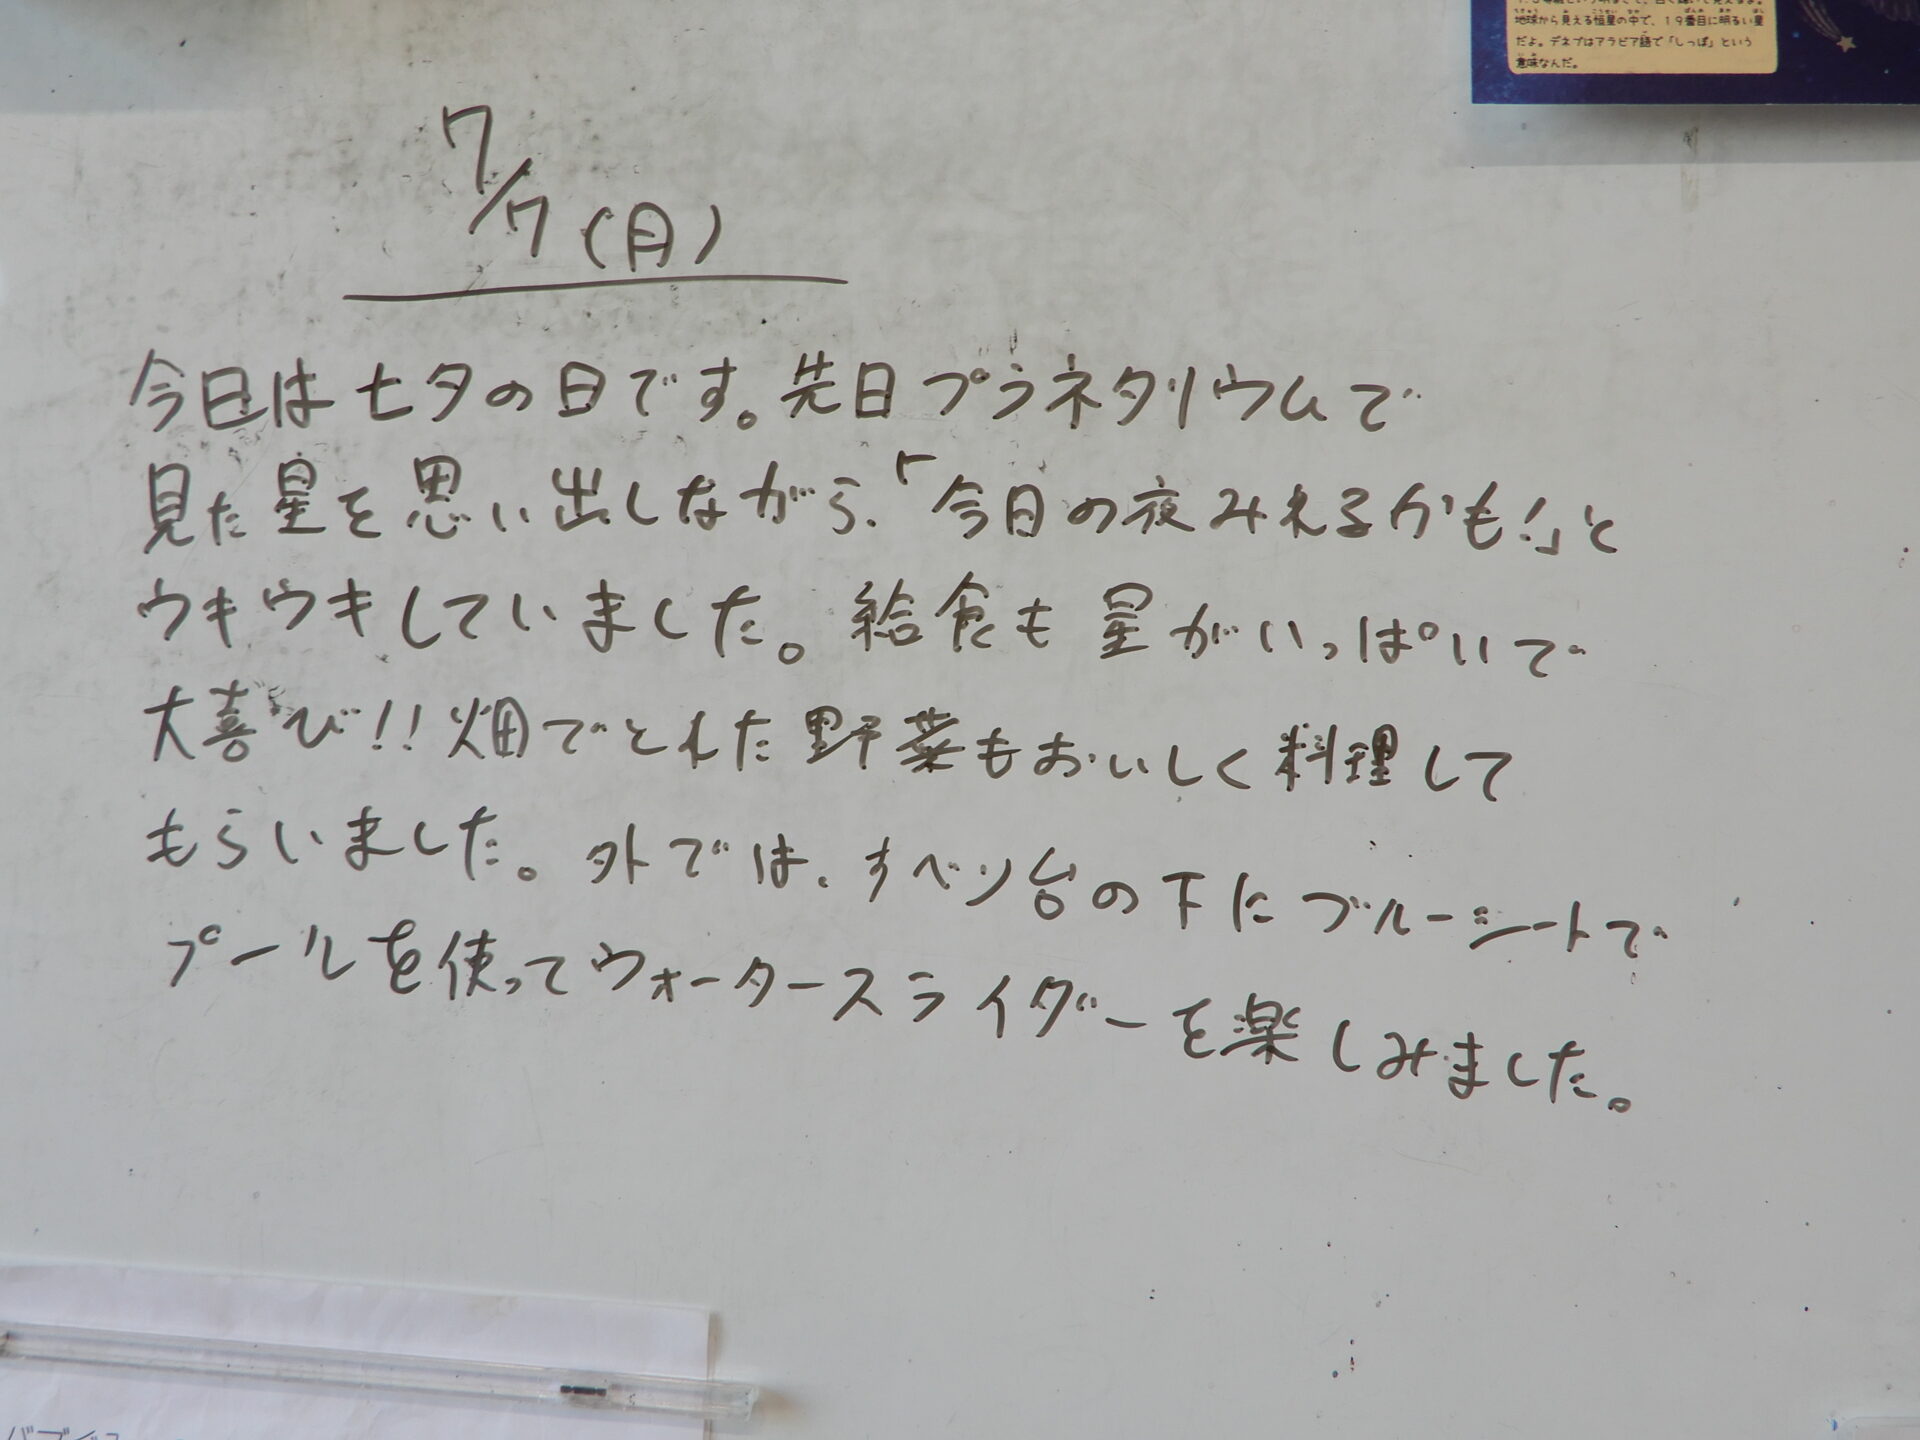 地球から見える恒星の中で、19番目に明るい星
だよ。デネブはアラビア語で「しっぽ」という
意味なんだ。
7/7(月)
今日は七夕の日です。先日プラネタリウムで
見た星を思い出しながら、「今日の夜みれるかも!」と
ウキウキしていました。給食も星がいっぱいで
大喜び!!畑でとれた野菜もおいしく料理して
もらいました。外では、すべり台の下にブルーシートで
プールを使ってウォータースライダーを楽しみました。